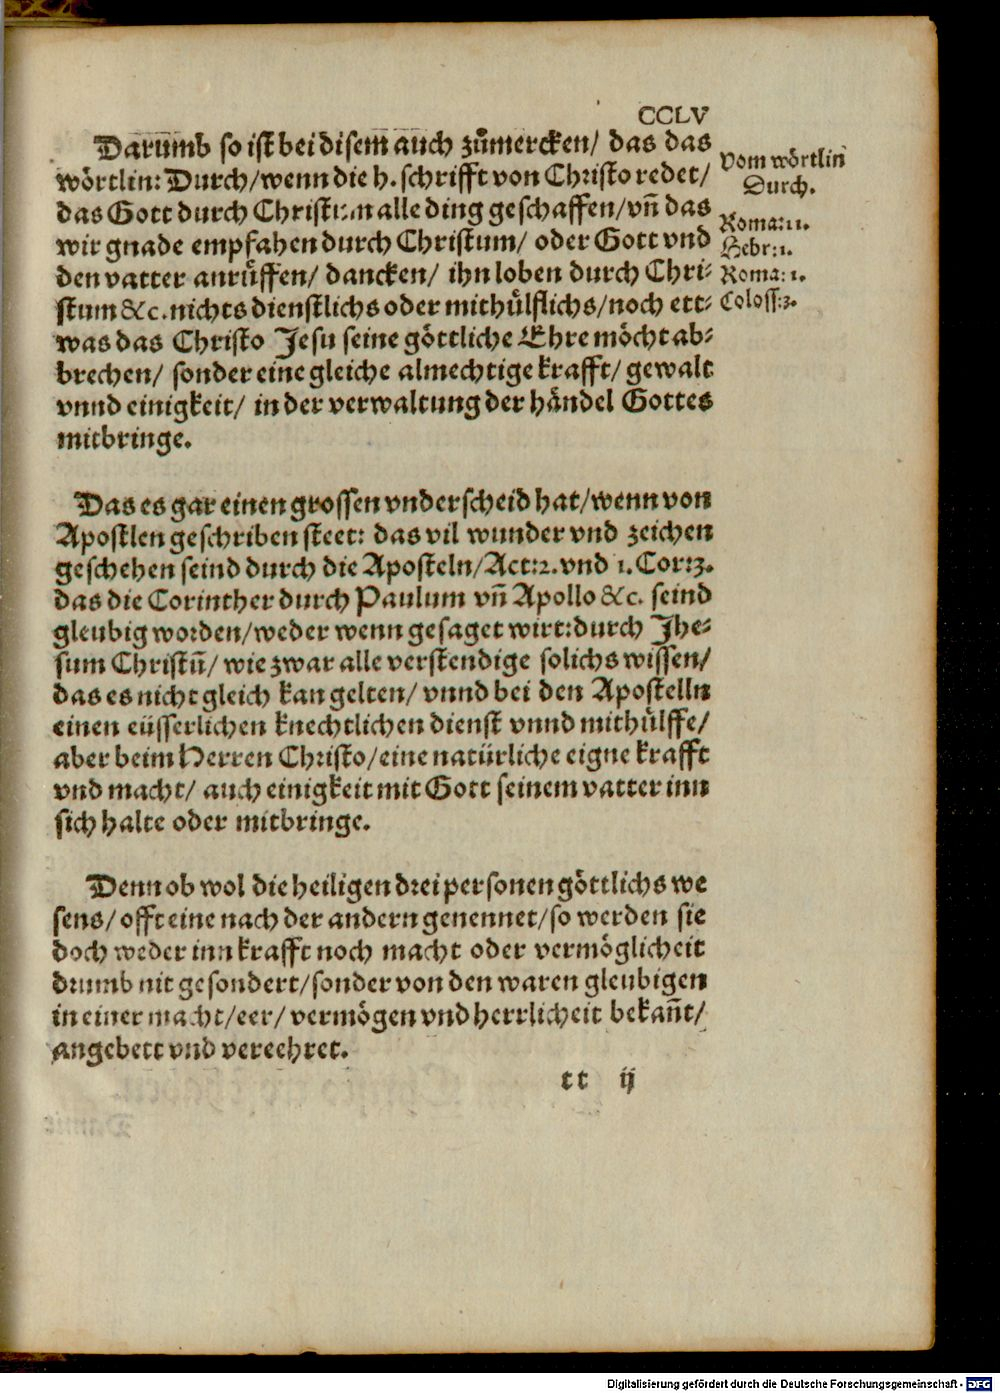 CCLV
Darumb so ist bei disem auch zůmercken/ das das
wörtlin: Durch/wenn die h. schrifft von Christo redet/
das Gott durch Christum alle ding geschaffen/vñ das
wir gnade empfahen durch Christum/ oder Gott vnd
den vatter anrůffen/ dancken/ ihn loben durch Chri-
stum &c. nichts dienstlichs oder mithülflichs/noch ett-
was das Christo Jesu seine göttliche Ehre möcht ab-
brechen/ sonder eine gleiche almechtige krafft/ gewalt
vnnd einigkeit/ in der verwaltung der händel Gottes
mitbringe.
Vom wörtlin
Durch.
Roma: 11.
Hebr: 1.
Roma: 1.
Coloss: 3.
Das es gar einen grossen vnderscheid hat/wenn von
Apostlen geschriben steet: das vil wunder vnd zeichen
geschehen seind durch die Aposteln/Act: 2. vnd 1. Cor: 3.
das die Corinther durch Paulum vñ Apollo &c. seind
gleubig worden/weder wenn gesaget wirt: durch Jhe-
sum Christũ/ wie zwar alle verstendige solichs wissen/
das es nicht gleich kan gelten/ vnnd bei den Apostelln
einen eüsserlichen knechtlichen dienst vnnd mithülffe/
aber beim Herren Christo/eine natürliche eigne krafft
vnd macht/ auch einigkeit mit Gott seinem vatter inn
sich halte oder mitbringe.
Denn ob wol die heiligen drei personen göttlichs we
sens/ offt eine nach der andern genennet/so werden sie
doch weder inn krafft noch macht oder vermöglicheit
drumb nit gesondert/sonder von den waren gleubigen
in einer macht/eer/ vermögen vnd herrlicheit bekañt/
angebett vnd vereehret.
tt ij
Digitalisierung gefördert durch die Deutsche Forschungsgemeinschaft - DFG